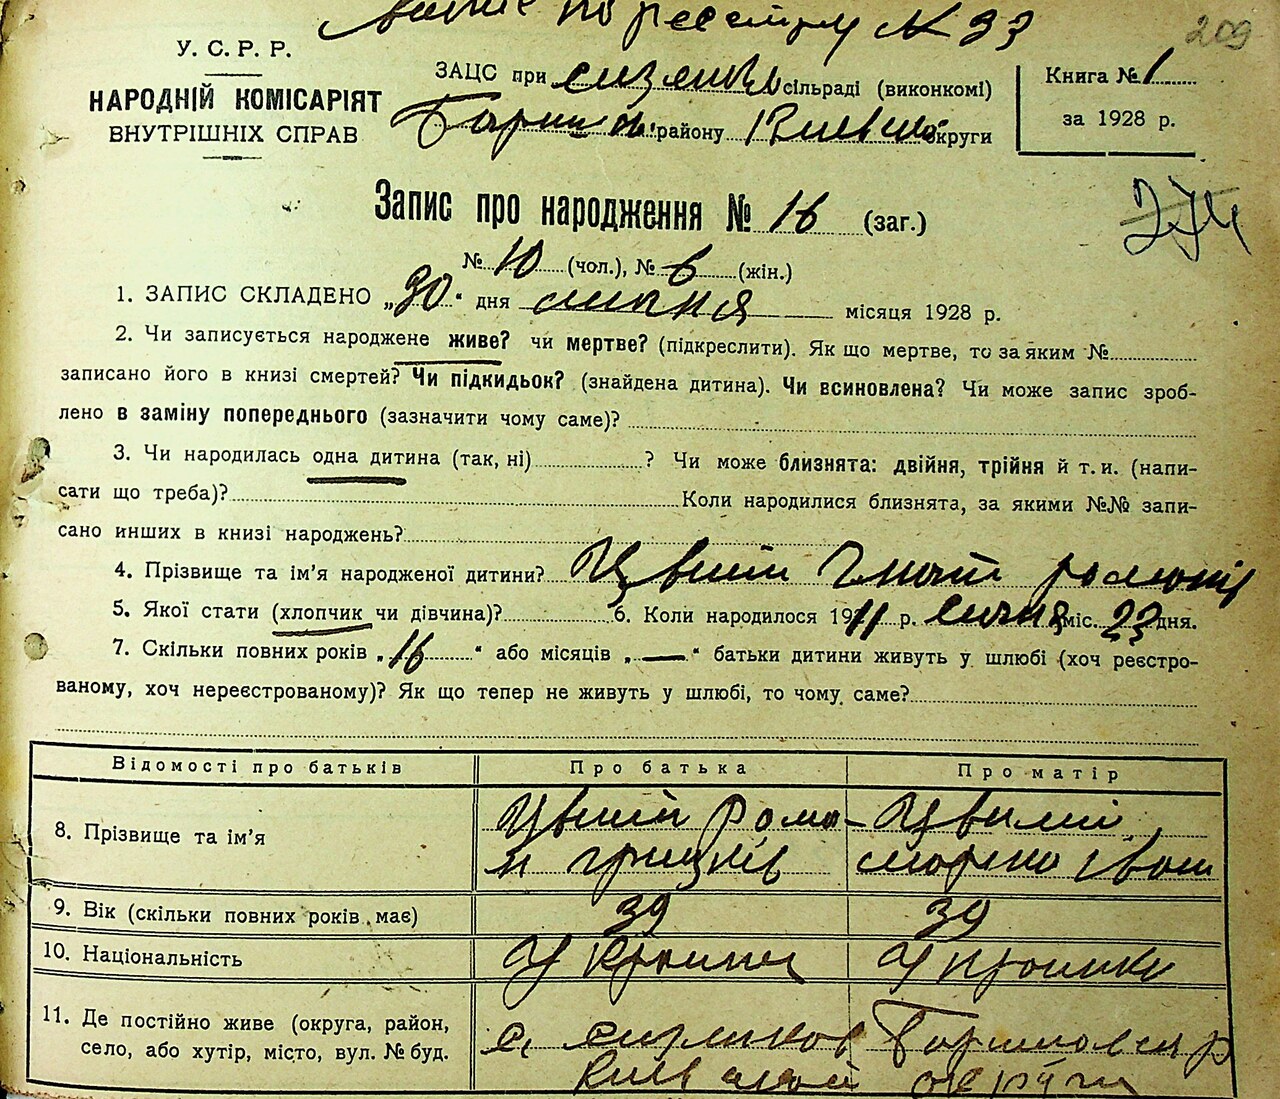 по реестру № 33
209
У. С. Р. Р.
НАРОДНІЙ КОМІСАРІЯТ
ВНУТРІШНІХ СПРАВ
ЗАЦС при сільраді (виконкомі)
району округи
Книга № 1
за 1928 р.
274
Запис про народження № 16 (заг.)
№ 10 (чол.), № 6 (жін.)
1. ЗАПИС СКЛАДЕНО „30" дня липня місяця 1928 р.
2. Чи записується народжене живе? чи мертве? (підкреслити). Як що мертве, то за яким №
записано його в книзі смертей? Чи підкидьок? (знайдена дитина). Чи всиновлена? Чи може запис зроб-
лено в заміну попереднього (зазначити чому саме)?
3. Чи народилась одна дитина (так, ні) ? Чи може близнята: двійня, трійня й т. и. (напи-
сати що треба)? Коли народилися близнята, за якими №№ запи-
сано инших в книзі народжень?
4. Прізвище та ім'я народженої дитини? Гнат
5. Якої стати (хлопчик чи дівчина)? 6. Коли народилося 1911 р. січня міс. 23 дня.
7. Скільки повних років „16" або місяців „—" батьки дитини живуть у шлюбі (хоч реєстро-
ваному, хоч нереєстрованому)? Як що тепер не живуть у шлюбі, то чому саме?
Відомості про батьків Про батька Про матір
8. Прізвище та ім'я
9. Вік (скільки повних років має) 39 39
10. Національність Українец Українка
11. Де постійно живе (округа, район,
село, або хутір, місто, вул. № буд. с.
округи